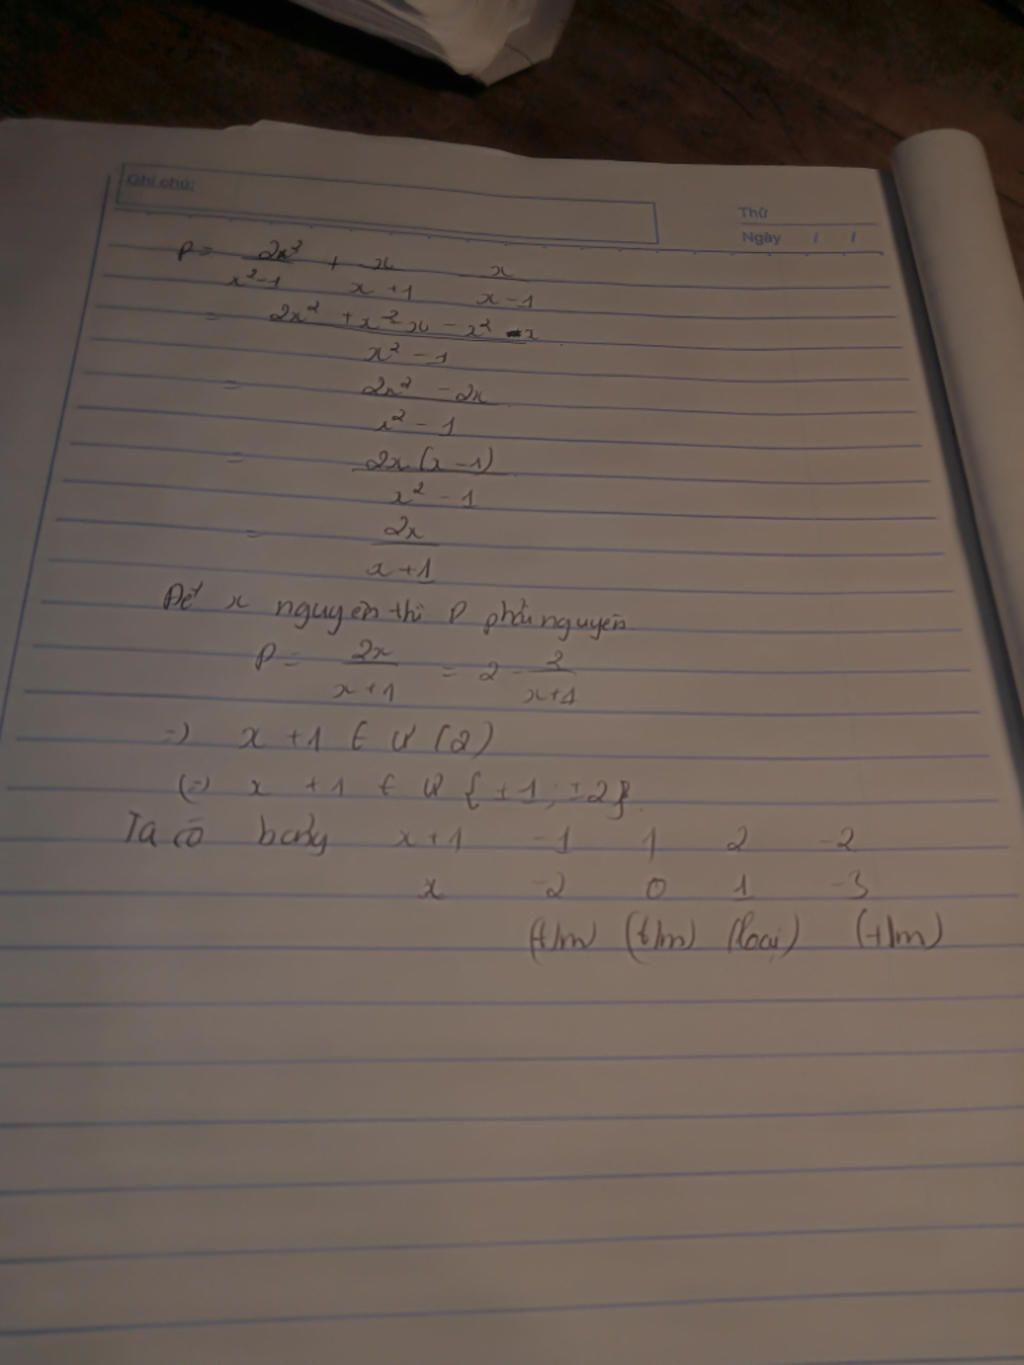 Ghi chú:
Thứ
Ngày / /
P = 2x²/x²-1 + x/x+1 x/x-1
= 2x² + x² x - x² - x / x² - 1
= 2x² - 2x / x² - 1
= 2x(x - 1) / x² - 1
= 2x / x + 1
Để x nguyên thì P phải nguyên
P = 2x / x + 1 = 2 - 2 / x+1
=) x + 1 ∈ Ư (2)
(=) x + 1 ∈ Ư {±1; ±2}
Ta có bảng x+1 -1 1 2 -2
x -2 0 1 -3
(t/m) (t/m) (loại) (t/m)